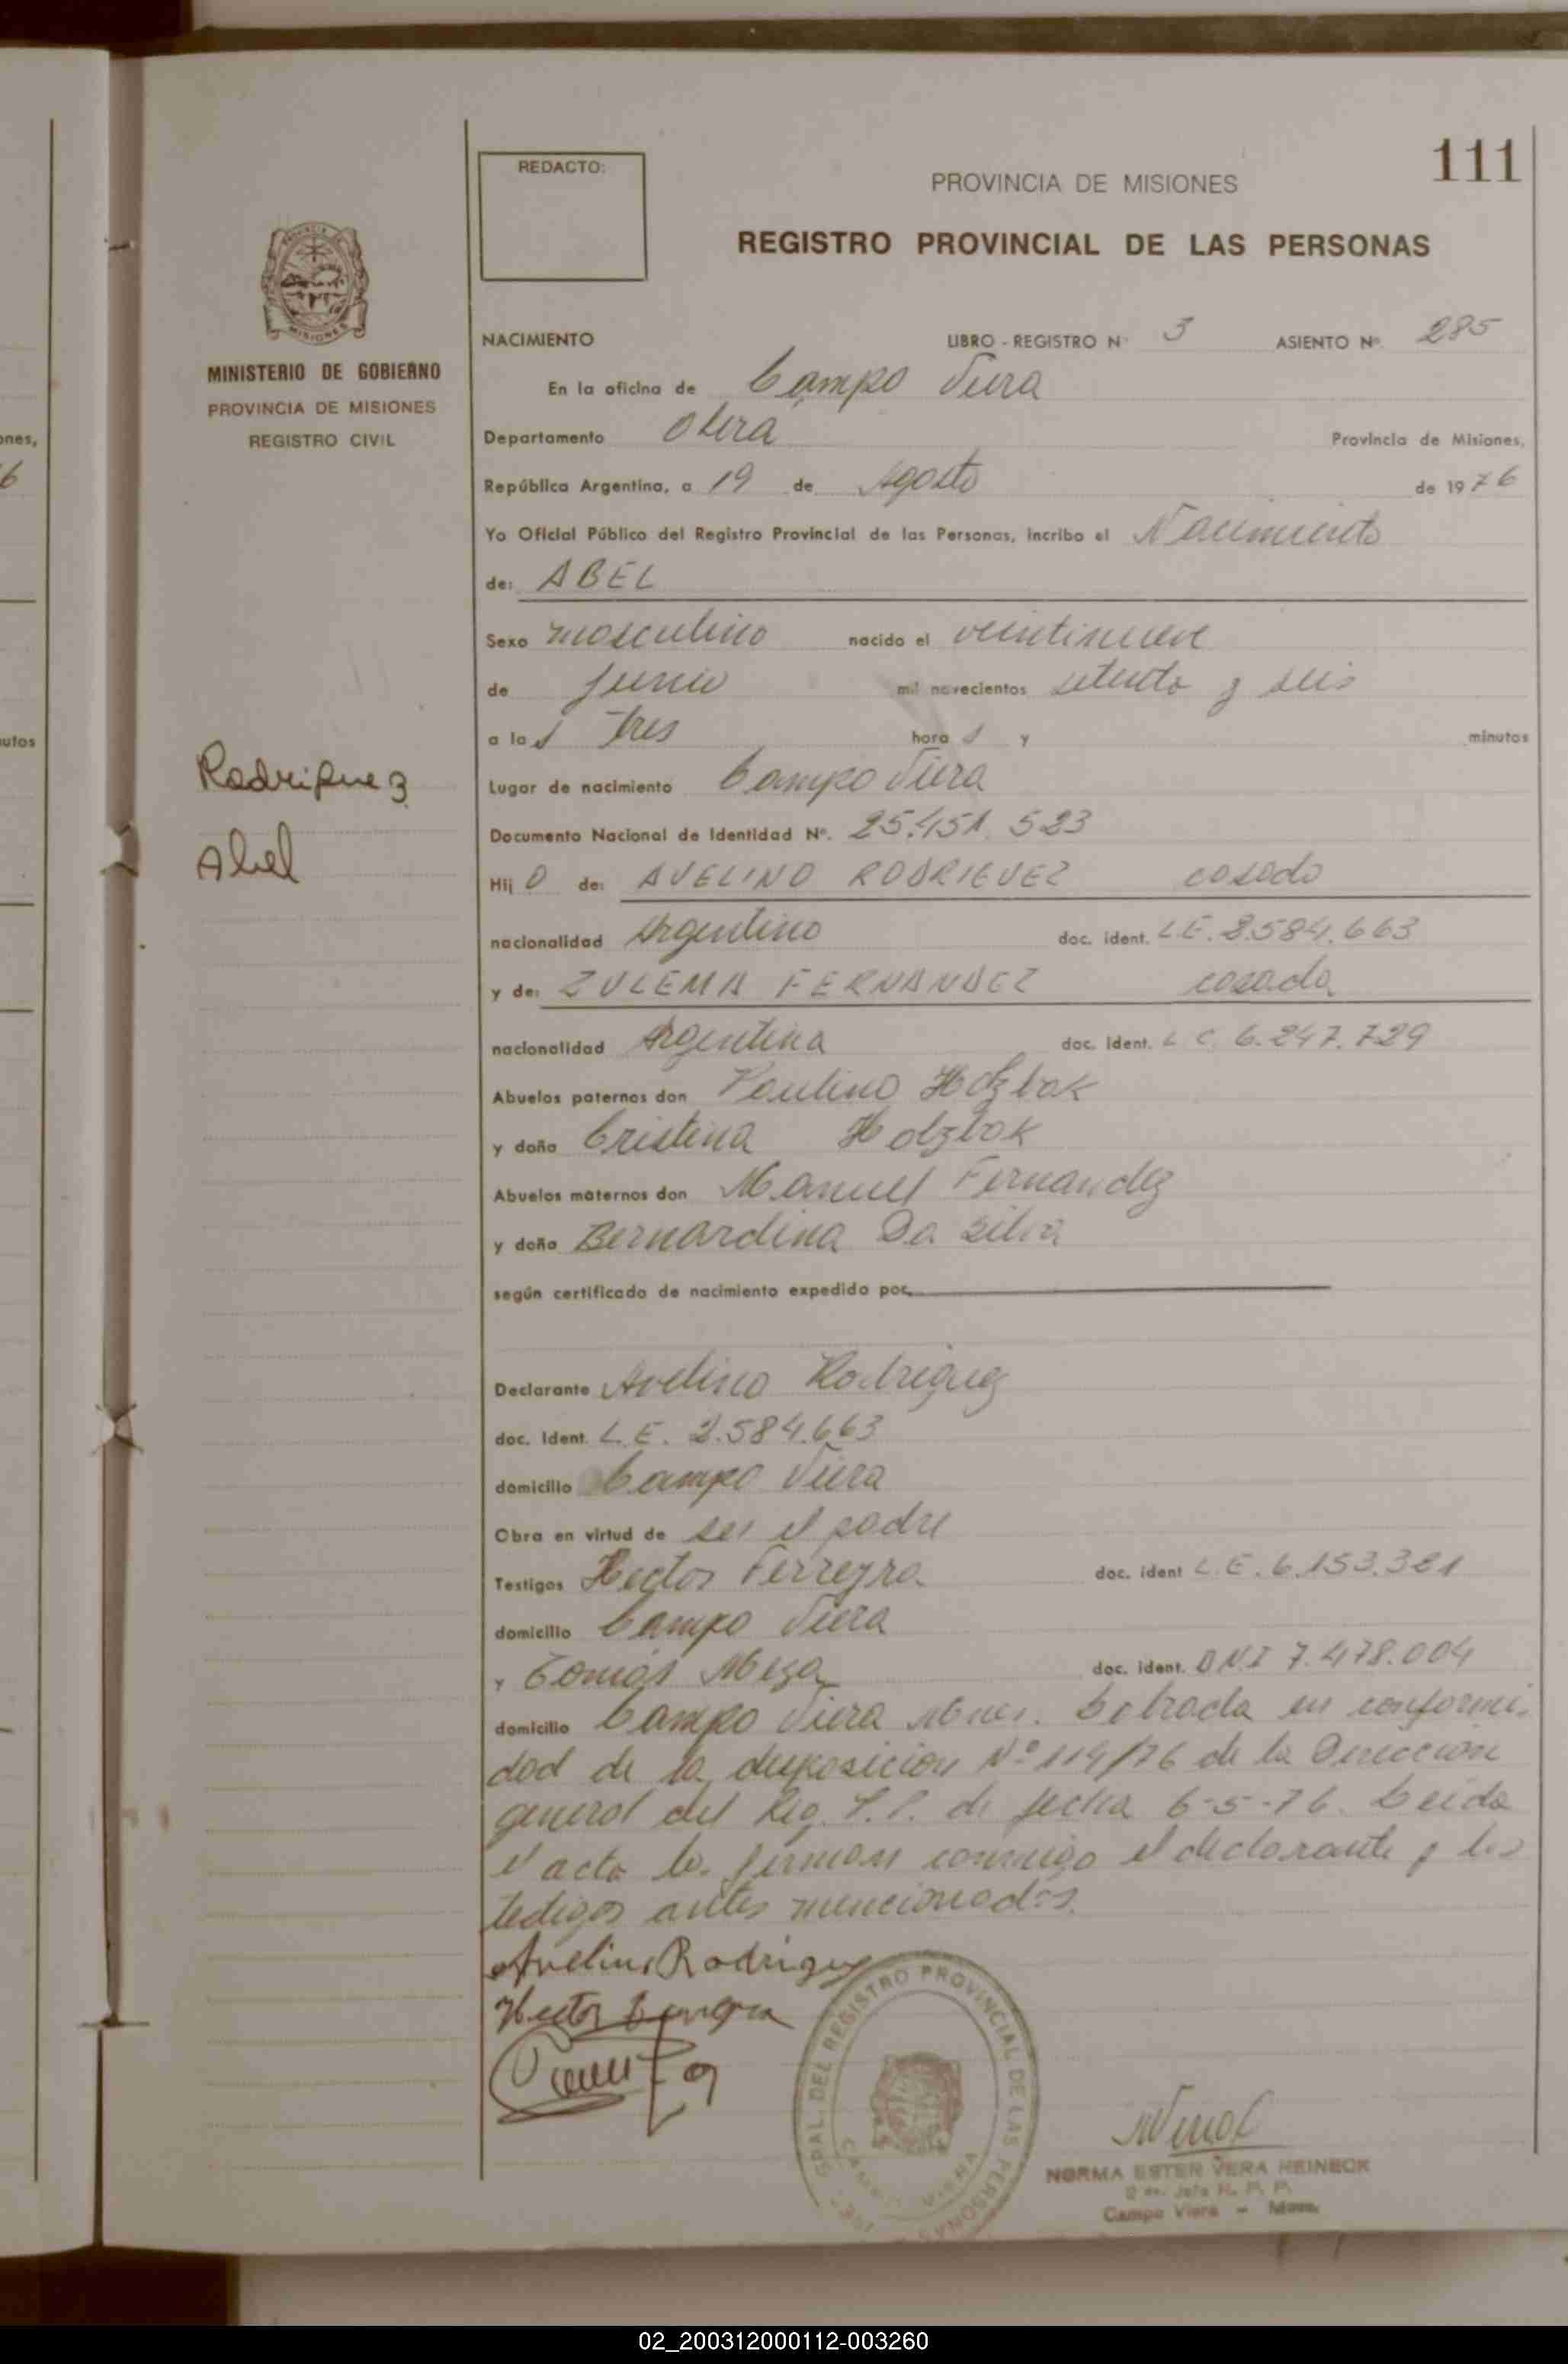 111
REDACTO:
PROVINCIA DE MISIONES
REGISTRO PROVINCIAL DE LAS PERSONAS
MISIONES
MINISTERIO DE GOBIERNO
PROVINCIA DE MISIONES
REGISTRO CIVIL
ones,
6
utos
Rodriguez
Abel
NACIMIENTO LIBRO - REGISTRO Nº 3 ASIENTO Nº. 285
En la oficina de Campo Viera
Departamento Obera Provincia de Misiones,
República Argentina, a 19 de Agosto de 1976
Yo Oficial Público del Registro Provincial de las Personas, incribo el Nacimiento
de: ABEL
Sexo masculino nacido el veintinueve
de Junio mil novecientos setenta y seis
a las Tres hora s y minutos
Lugar de nacimiento Campo Viera
Documento Nacional de Identidad Nº. 25.451.523
Hij o de: AVELINO RODRIGUEZ casado
nacionalidad Argentino doc. ident. L.E. 2.584.663
y de: ZULEMA FERNANDEZ casada
nacionalidad Argentina doc. ident. L C. 6.247.729
Abuelos paternos don Paulino Holzbak
y doña Cristina Holzbok
Abuelos maternos don Manuel Fernandez
y doña Bernardina Da Silva
según certificado de nacimiento expedido por
Declarante Avelino Rodriguez
doc. Ident. L.E. 2.584.663
domicilio Campo Viera
Obra en virtud de ser el padre
Testigos Hector Ferreyra doc. ident L.E. 6.153.381
domicilio Campo Viera
y Tomás Meza doc. ident. D N.I 7.478.004
domicilio Campo Viera Mnes. Labrada en conformi-
dad de la disposicion Nº 114/76 de la Direccion
general del Reg. P.P. de fecha 6-5-76. Leida
el acta la firman conmigo el declarante y los
testigos antes mencionados.
Avelino Rodriguez
Hector Ferreyra
GRAL. DEL REGISTRO PROVINCIAL DE LAS PERSONAS
CAMPO VIERA
NORMA ESTER VERA HEINECK
Jefa R. P. P.
Campo Viera - Mnes.
02_200312000112-003260